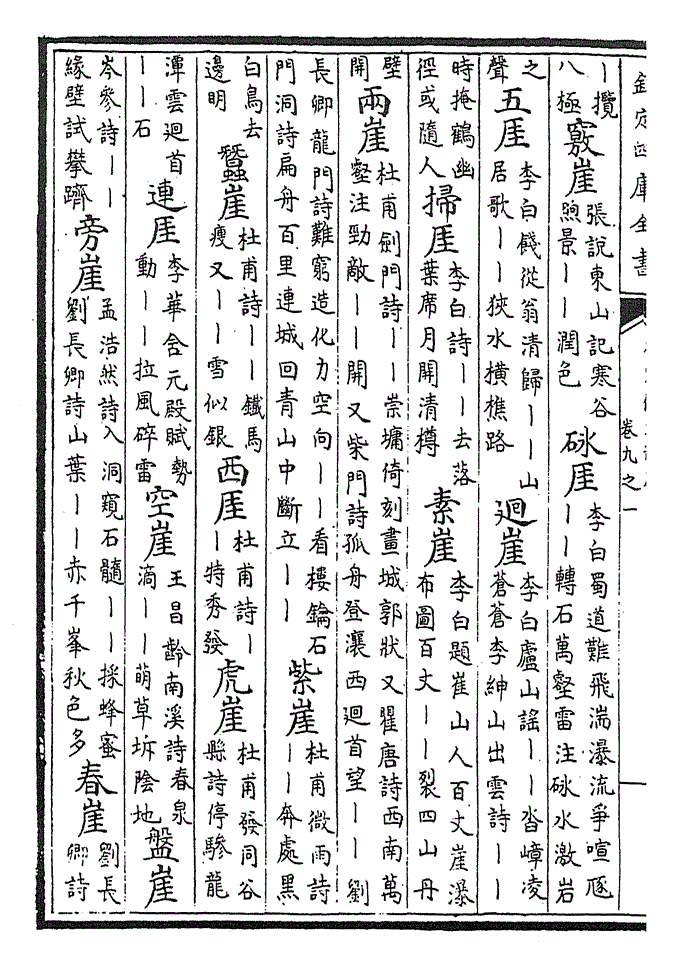 欽定四庫全書 卷九之一
丨攬八極竅崖張說東山記寒谷煦景丨丨潤色砯厓李白蜀道難飛湍瀑流爭喧豗丨丨轉石萬壑雷注砯水激岩
之聲五厓李白餞從翁清歸丨丨山居歌丨丨狹水橫樵路迴崖李白廬山謠丨丨沓嶂凌蒼蒼李紳山出雲詩丨丨
時掩鶴幽徑或隨人掃厓李白詩丨丨去落葉席月開清樽素崖李白題崔山人百丈崖瀑布圖百丈丨丨裂四山丹
壁開兩崖杜甫劍門詩丨丨崇墉倚刻畫城郭狀又瞿唐詩西南萬壑注勁敵丨丨開又柴門詩孤舟登瀼西迴首望丨丨劉
長卿龍門詩難窮造化力空向丨丨看樓鑰石門洞詩扁舟百里連城回青山中斷立丨丨紫崖杜甫微雨詩丨丨奔處黑
白鳥去邊明蠶崖杜甫詩丨丨鐵馬瘦又丨丨雪似銀西厓杜甫詩丨丨特秀發虎崖杜甫發同谷縣詩停驂龍
潭雲迴首丨丨石連厓李華含元殿賦勢動丨丨拉風碎雷空崖王昌齡南溪詩春泉滴丨丨萌草坼陰地盤崖
岑參詩丨丨緣壁試攀躋旁崖孟浩然詩入洞窺石髓丨丨採蜂蜜劉長卿詩山葉丨丨赤千峯秋色多春崖劉長卿詩